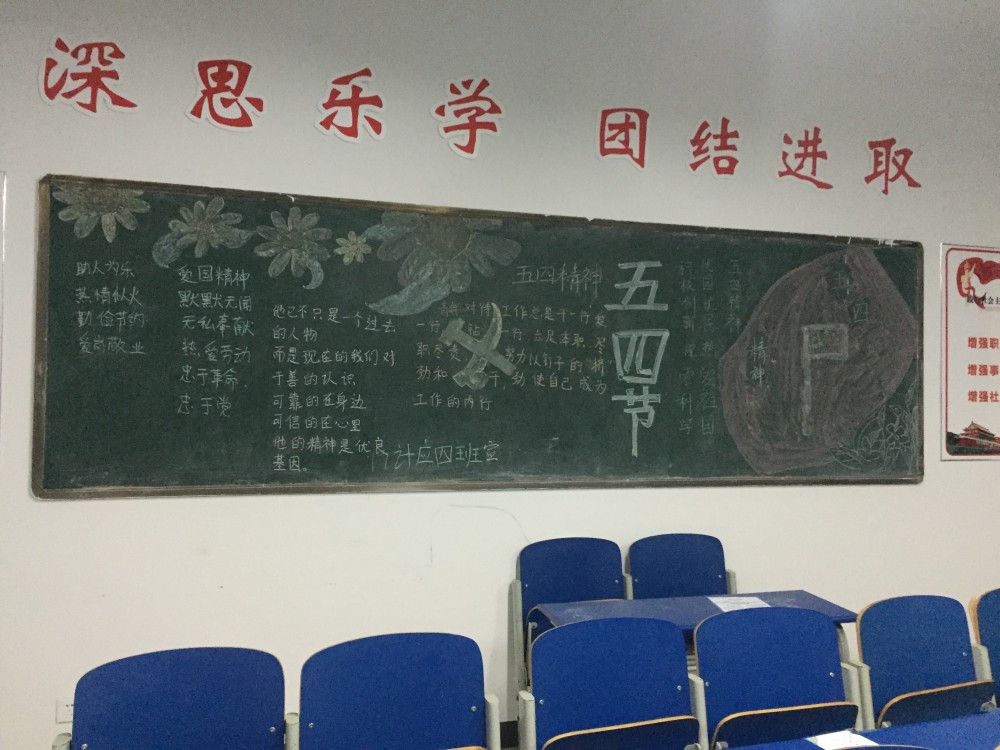 深思乐学 团结进取
助人为乐
热情似火
勤俭节约
爱岗敬业
爱国精神
默默无闻
无私奉献
热爱劳动
忠于革命
忠于党
他已不只是一个过去
的人物
而是现在的我们对
于善的认识
可靠的在身边
可信的在心里
他的精神是优良
基因。
五四精神
对待工作态是干一行爱
一行 一行 立足本职,尽
职尽责 努力以钉子的 精
劲和 劲使自己成为
工作的内行
计应四班宣
五四节
五四精神
爱国
五四
精神
增强职
增强事
增强社